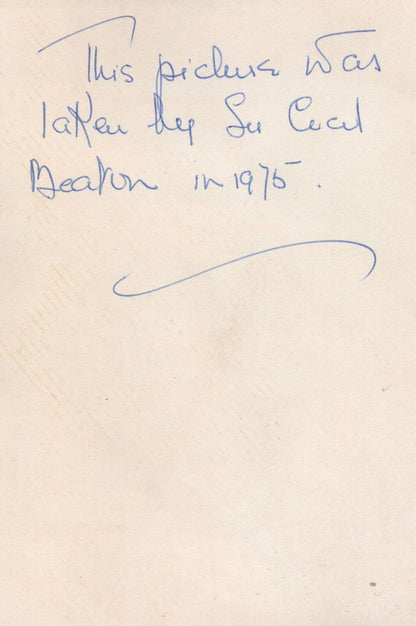 This picture was
taken by Sir Cecil
Beaton in 1975.